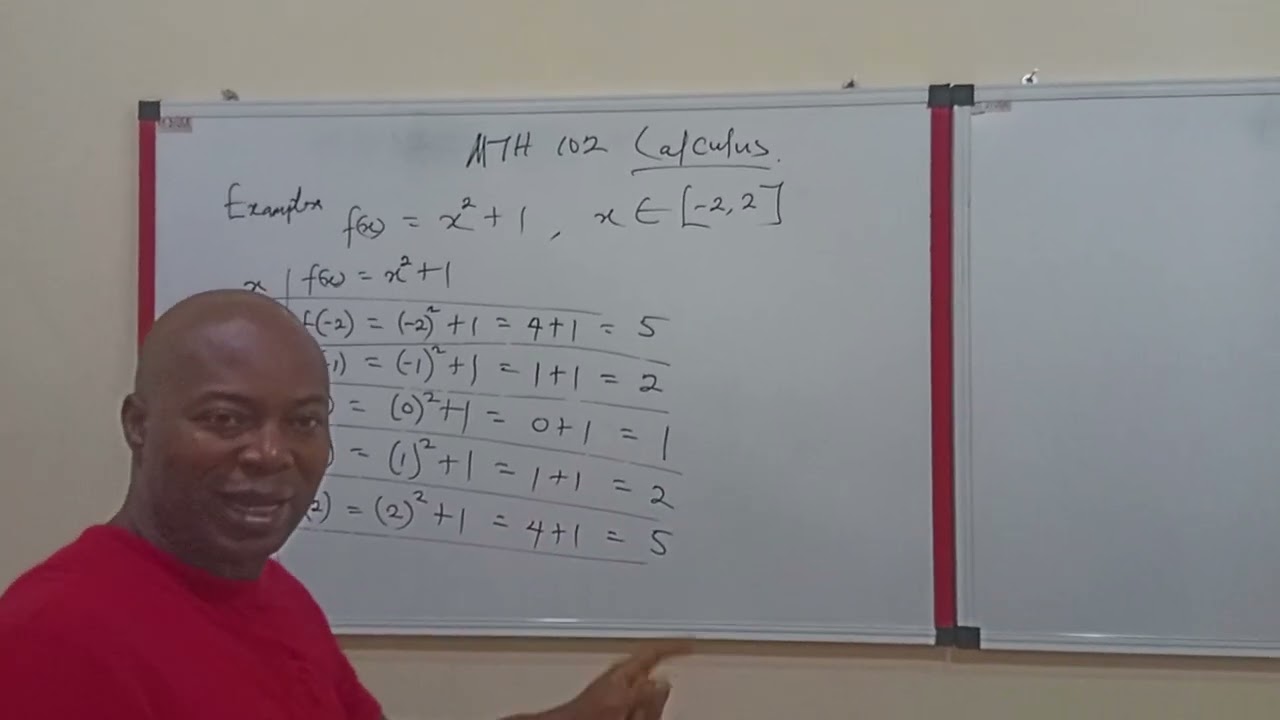 MTH 102 Calculus.
Example f(x) = x² + 1, x ∈ [-2, 2]
x | f(x) = x² + 1
f(-2) = (-2)² + 1 = 4 + 1 = 5
1) = (-1)² + 1 = 1 + 1 = 2
) = (0)² + 1 = 0 + 1 = 1
) = (1)² + 1 = 1 + 1 = 2
(2) = (2)² + 1 = 4 + 1 = 5